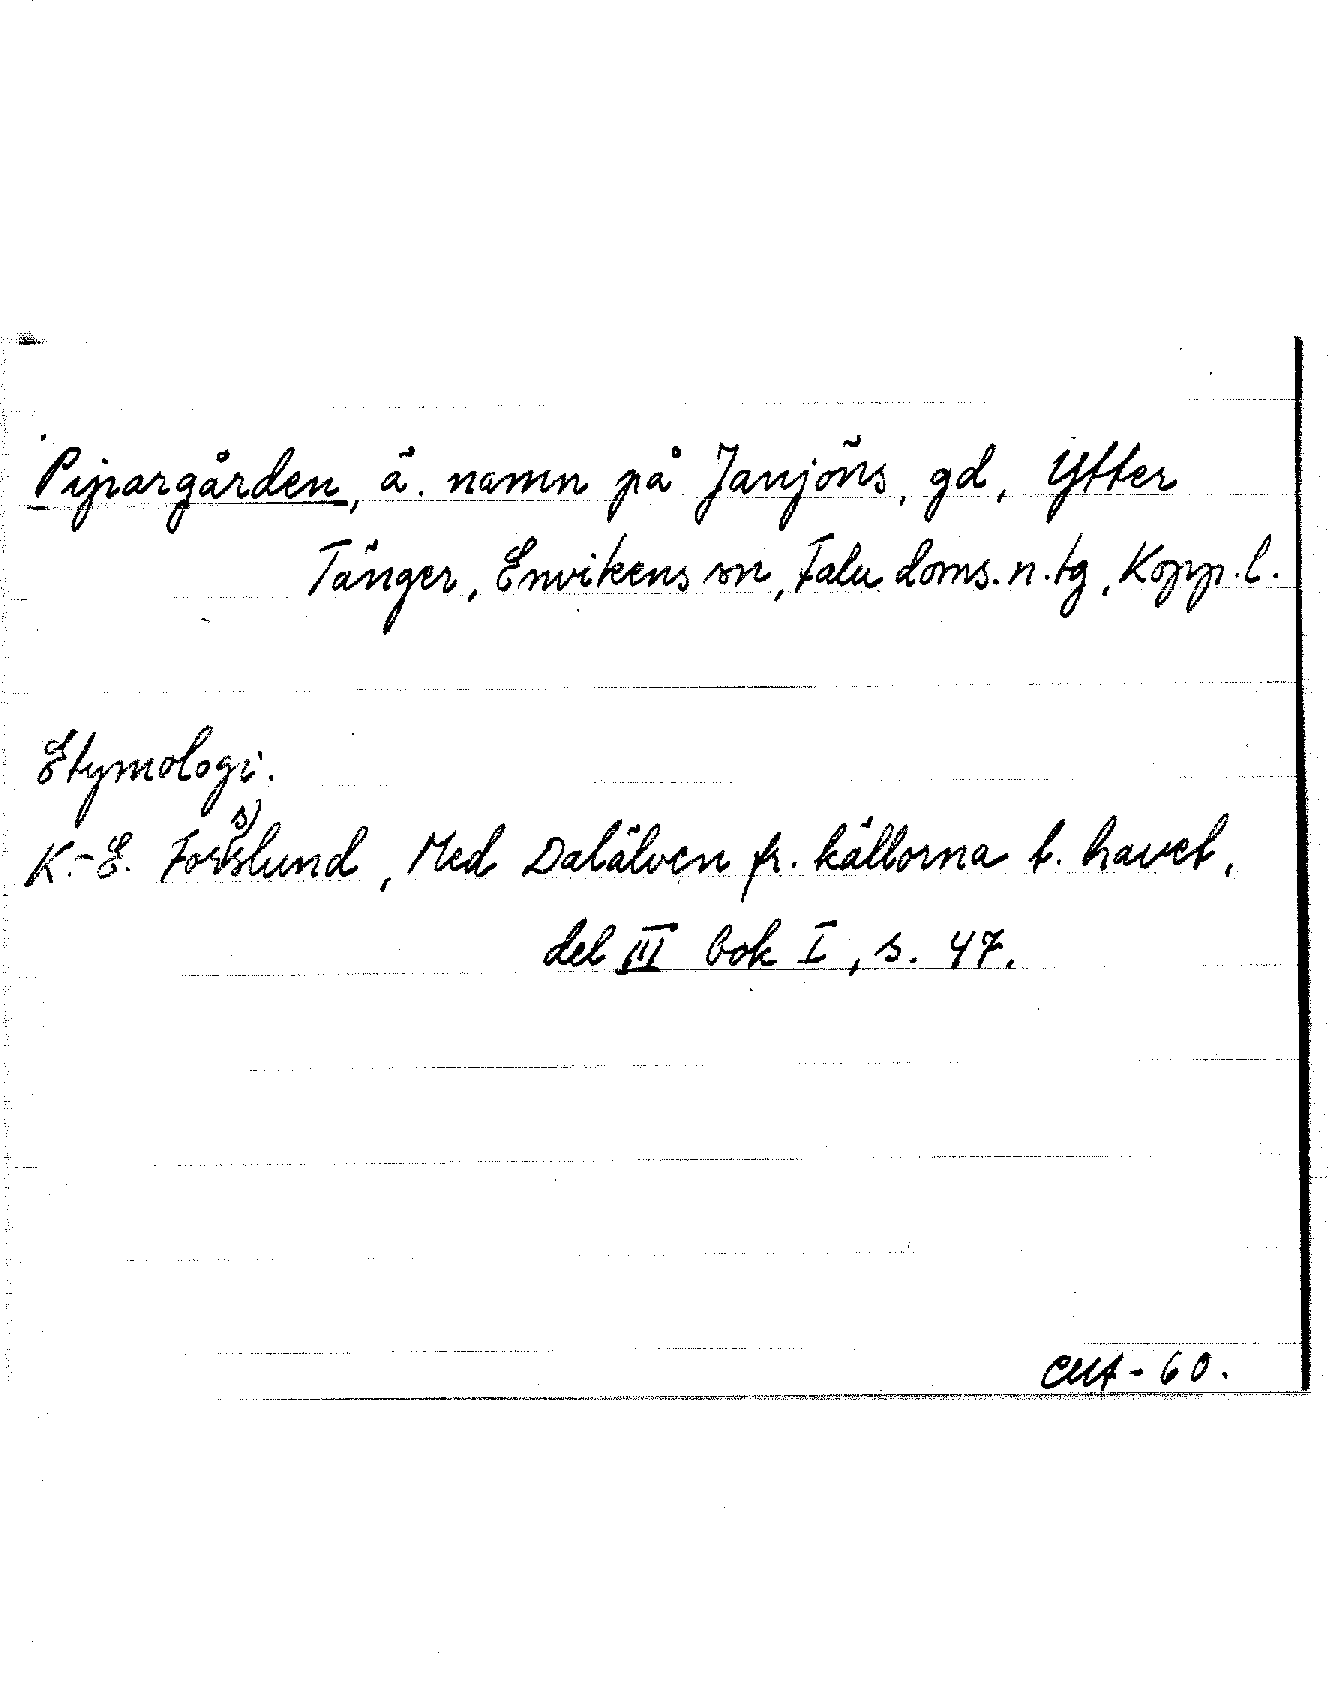 Pipargården, ä. namn på Janjöns, gd, Ytter
Tänger, Envikens sn, Falu doms. n. tg, Kopp. l.
Etymologi.
K.-E. Forsslund, Med Dalälven fr. källorna t. havet,
del III bok I, s. 47.
- 60.